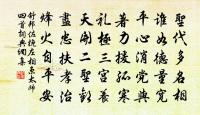 聖代多名相
誰如德量寬
平心消黨與
著力援孤寒
禮極三
天開二聖歡
盡忠扶孝治
烽火自平安
舒邦佐挽左相京太師
四首詞典網集